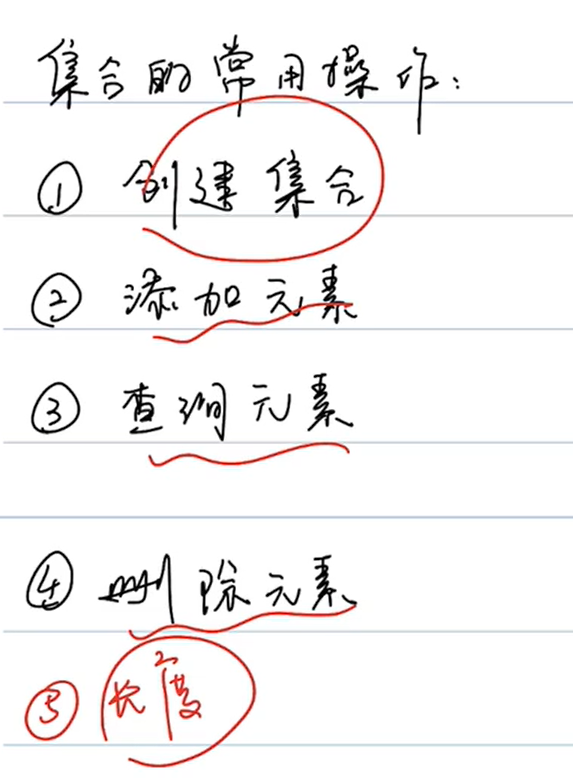 集合的常用操作:
① 创建集合
② 添加元素
③ 查询元素
④ 删除元素
⑤ 长度